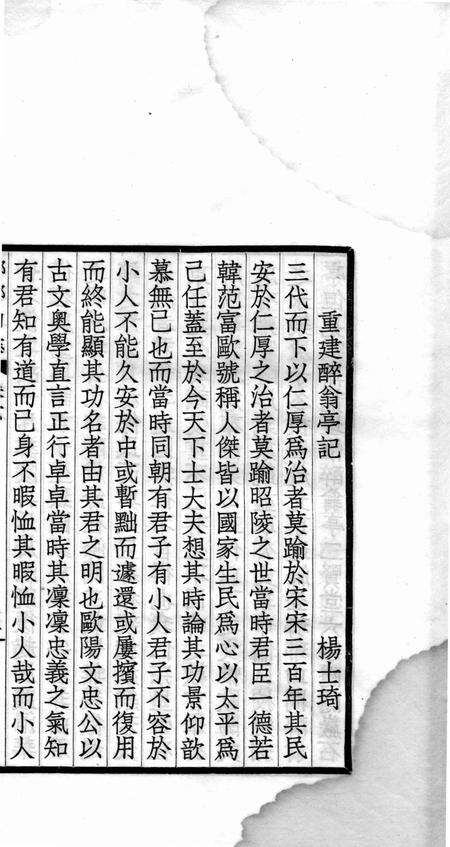 重建醉翁亭記 楊士琦
三代而下以仁厚爲治者莫踰於宋宋三百年其民
安於仁厚之治者莫踰昭陵之世當時君臣一德若
韓范富歐號稱人傑皆以國家生民爲心以太平爲
己任蓋至於今天下士大夫想其時論其功景仰歆
慕無已也而當時同朝有君子有小人君子不容於
小人不能久安於中或暫黜而遽還或屢擯而復用
而終能顯其功名者由其君之明也歐陽文忠公以
古文奧學直言正行卓卓當時其凜凜忠義之氣知
有君知有道而已身不暇恤其暇恤小人哉而小人